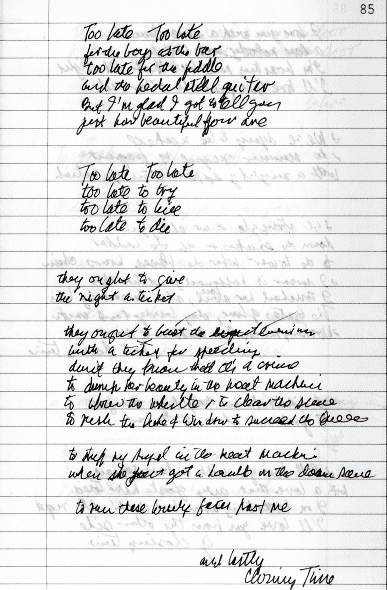 85
Too late Too late
for the boys at the bar
too late for the fiddle
and the pedal steel guitar
But I'm glad I got to tell you
just how beautiful you are
Too late Too late
too late to try
too late to live
too late to die
they ought to give
the night a ticket
they ought to bust the
with a ticket for speeding
don't they know that it's a crime
to dump her beauty in the meat machine
to blow the whistle & to clear the scene
to the
to my angel in the meat machine
when she just got a in the scene
to run these lovely faces past me
and lastly
Closing Time